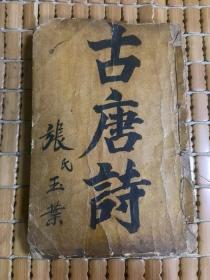 古唐詩
張氏玉業